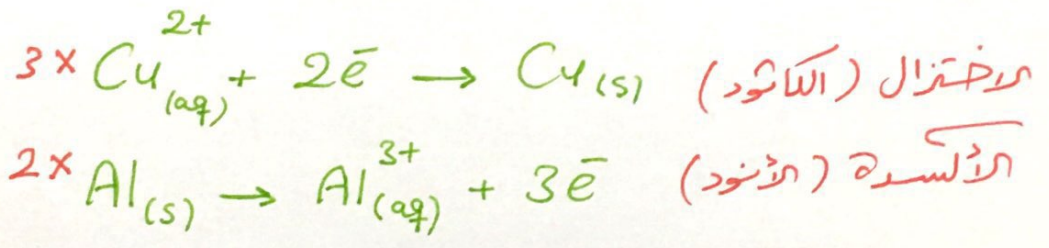 3 × Cu²⁺(aq) + 2e⁻ → Cu(s) الاختزال (الكاثود)
2 × Al(s) → Al³⁺(aq) + 3e⁻ الأكسدة (الأنود)